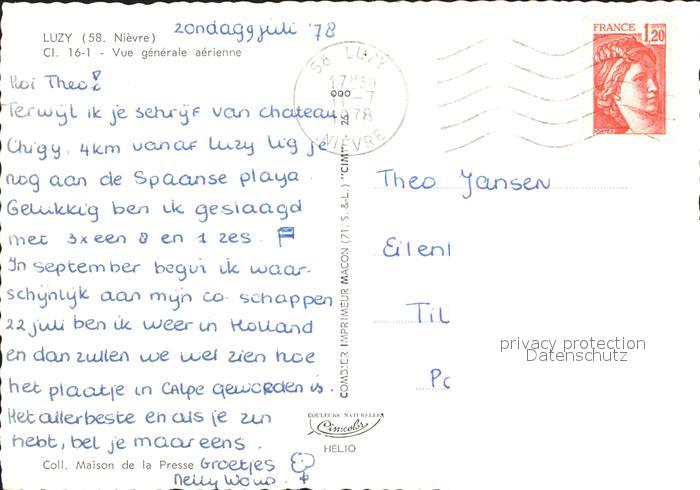 LUZY (58. Nièvre)
Cl. 16-1 - Vue générale aérienne
zondag 9 juli '78
Hoi Theo!
Terwijl ik je schrijf van chateau
Chigy. 4km vanaf Luzy lig je
nog aan de Spaanse playa.
Gelukkig ben ik geslaagd
met 3x een 8 en 1 zes.
In september begin ik waar-
schijnlijk aan mijn co-schappen
22 juli ben ik weer in Holland
en dan zullen we wel zien hoe
het plaatje in CALPE geworden is.
Het allerbeste en als je zin
hebt, bel je maar eens.
Coll. Maison de la Presse
Groetjes
Nelly
COMBIER IMPRIMEUR MACON (71. S.-&-L.) "CIM"
COULEURS NATURELLES
Cimcolor
HÉLIO
58 LUZY
17H30
11-7
1978
NIÈVRE
FRANCE 1,20
Theo Jansen
Eilen
Til
privacy protection
Datenschutz